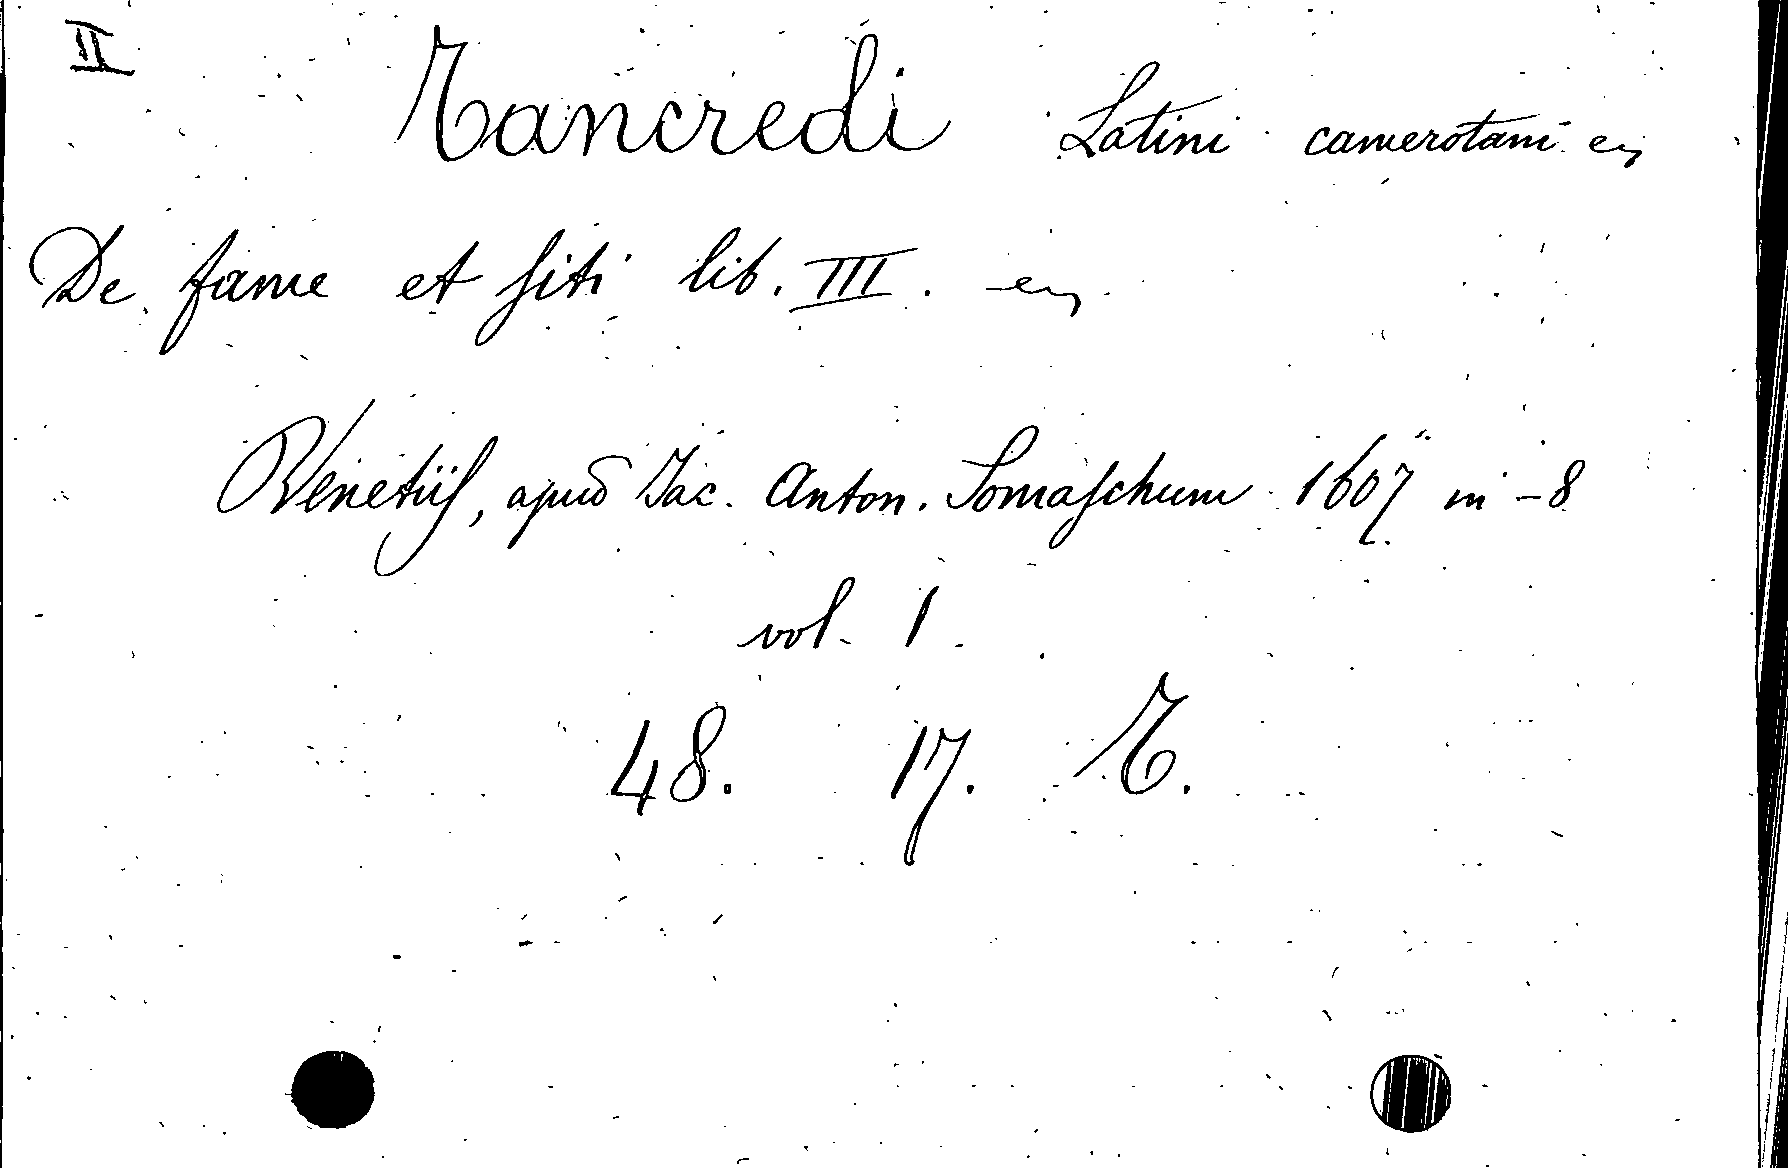 II
Tancredi Latini camerotani
De fame et siti lib. III.
Venetiis, apud Jac. Anton. Somaschum 1607 in-8
vol. 1.
48. 17. T.